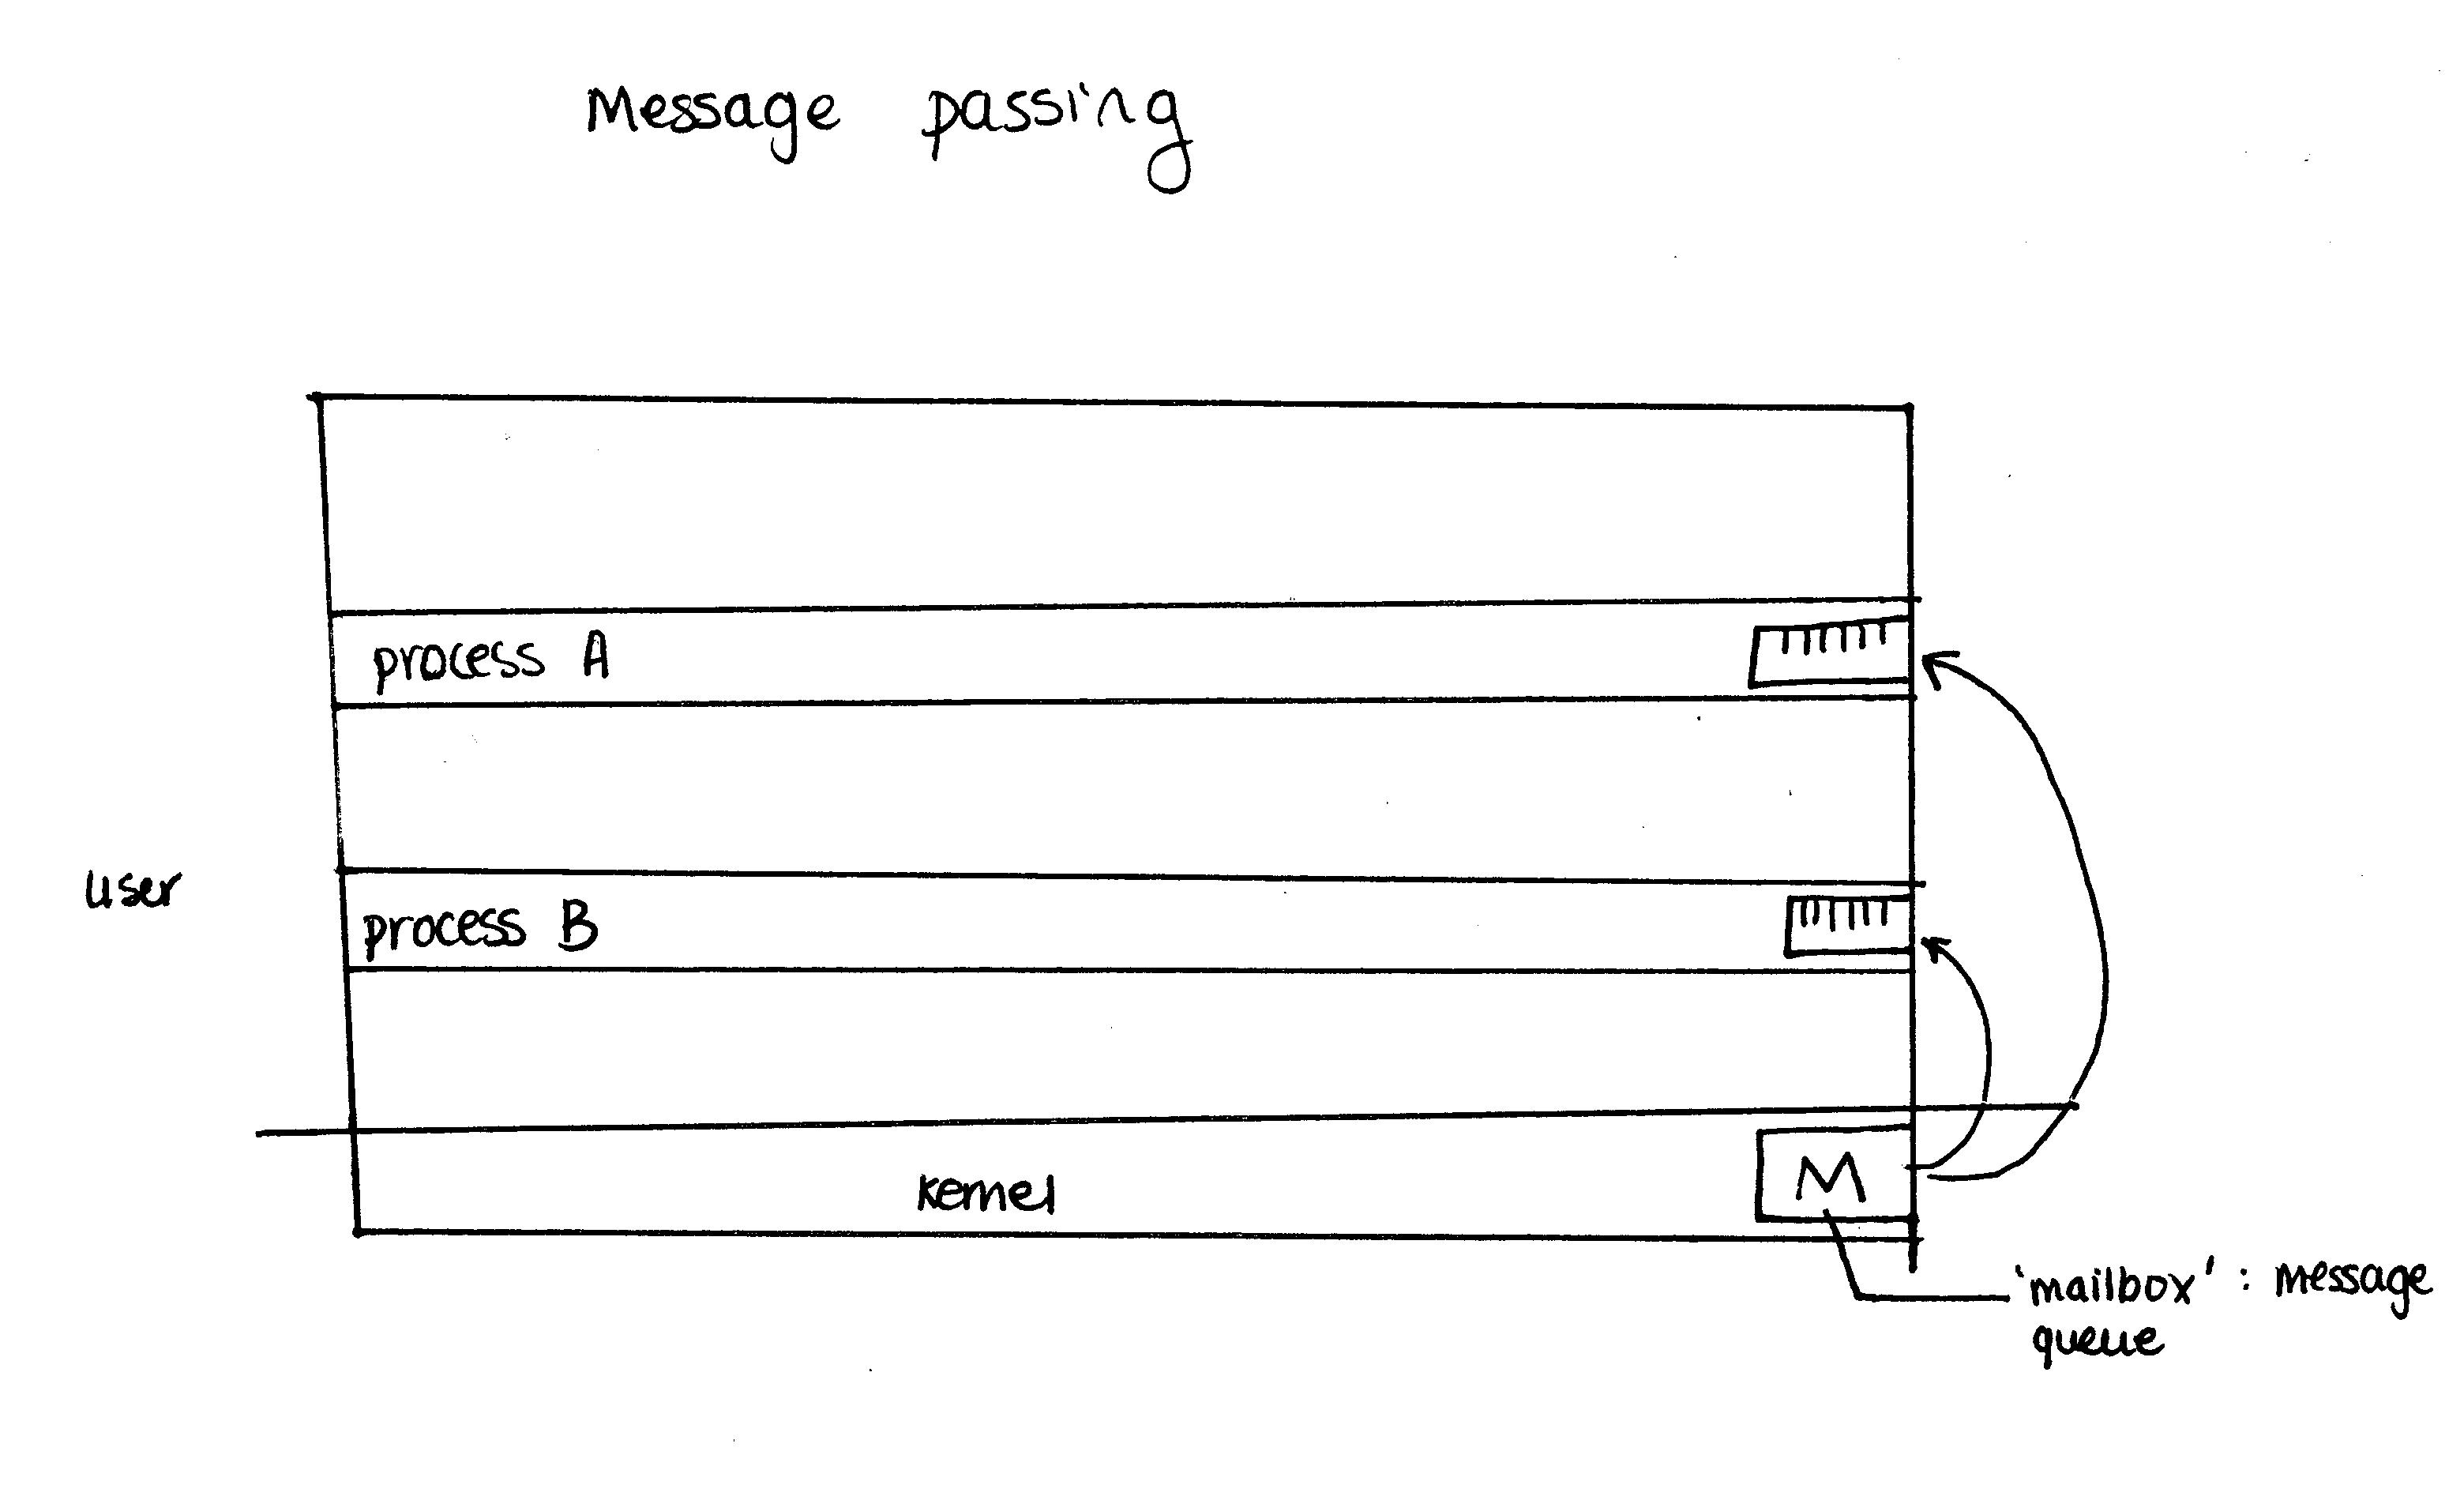 Message passing
process A
user
process B
kernel
M
'mailbox' : message
queue